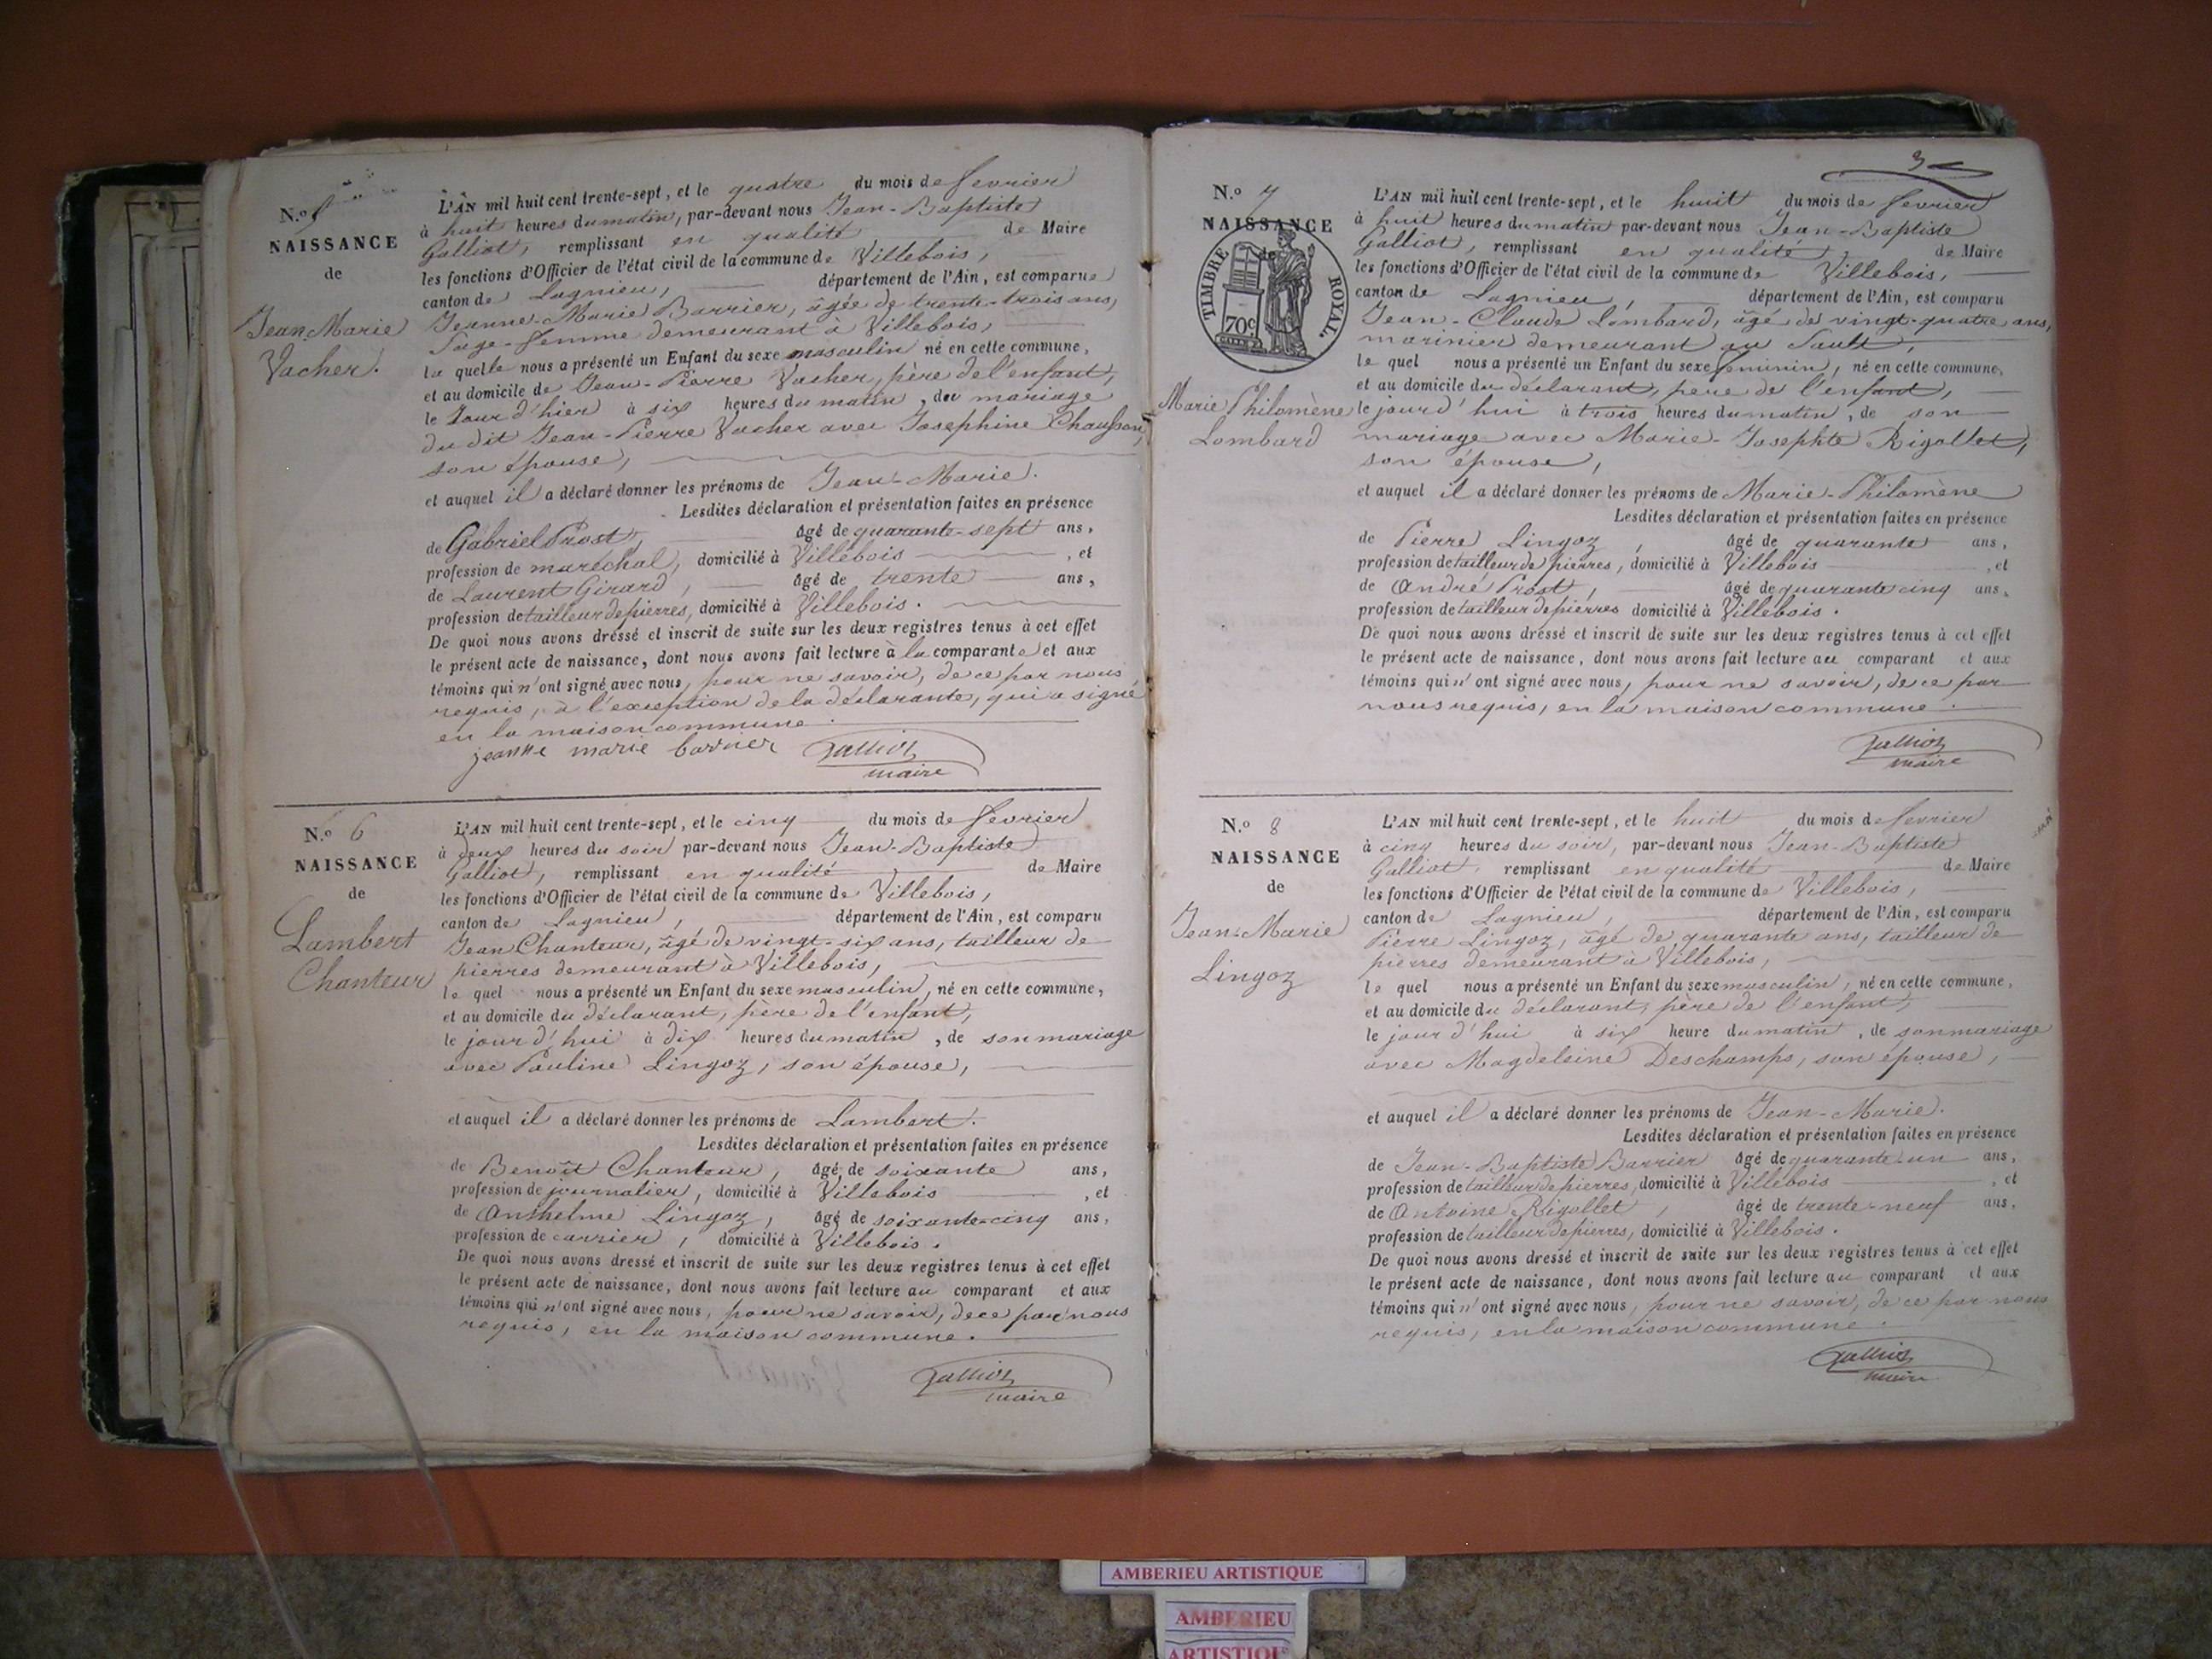 N.o 5
NAISSANCE
de
Jean-Marie
Vacher.
L'AN mil huit cent trente-sept, et le quatre du mois de fevrier
à huit heures du matin, par-devant nous Jean-Baptiste
Galliot, remplissant en qualité de Maire
les fonctions d'Officier de l'état civil de la commune de Villebois,
canton de Lagnieu, département de l'Ain, est comparue
Jeanne-Marie Barrier, âgée de trente-trois ans,
sage-femme demeurant à Villebois,
la quelle nous a présenté un Enfant du sexe masculin né en cette commune,
et au domicile de Jean-Pierre Vacher, père de l'enfant,
le Jour d'hier à six heures du matin, du mariage
du dit Jean-Pierre Vacher avec Josephine Chausson,
son épouse,
et auquel il a déclaré donner les prénoms de Jean-Marie.
Lesdites déclaration et présentation faites en présence
de Gabriel Prost, âgé de quarante-sept ans,
profession de maréchal, domicilié à Villebois, et
de Laurent Girard, âgé de trente ans,
profession de tailleur de pierres, domicilié à Villebois.
De quoi nous avons dressé et inscrit de suite sur les deux registres tenus à cet effet
le présent acte de naissance, dont nous avons fait lecture à la comparante et aux
témoins qui n'ont signé avec nous, pour ne savoir, de ce par nous
requis, à l'exception de la déclarante, qui a signé
en la maison commune.
jeanne marie barrier Galliot
maire
N.o 6
NAISSANCE
de
Lambert
Chanteur
L'AN mil huit cent trente-sept, et le cinq du mois de fevrier
à deux heures du soir par-devant nous Jean-Baptiste
Galliot, remplissant en qualité de Maire
les fonctions d'Officier de l'état civil de la commune de Villebois,
canton de Lagnieu, département de l'Ain, est comparu
Jean Chanteur, âgé de vingt-six ans, tailleur de
pierres demeurant à Villebois,
le quel nous a présenté un Enfant du sexe masculin, né en cette commune,
et au domicile du déclarant, père de l'enfant,
le jour d'hui à dix heures du matin, de son mariage
avec Pauline Lingoz, son épouse,
et auquel il a déclaré donner les prénoms de Lambert.
Lesdites déclaration et présentation faites en présence
de Benoît Chanteur, âgé de soixante ans,
profession de journalier, domicilié à Villebois, et
de Anthelme Lingoz, âgé de soixante-cinq ans,
profession de carrier, domicilié à Villebois.
De quoi nous avons dressé et inscrit de suite sur les deux registres tenus à cet effet
le présent acte de naissance, dont nous avons fait lecture au comparant et aux
témoins qui n'ont signé avec nous, pour ne savoir, de ce par nous
requis, en la maison commune.
Galliot
maire
3
N.o 7
NAISSANCE
de
TIMBRE ROYAL
70c
Marie Philomène
Lombard
L'AN mil huit cent trente-sept, et le huit du mois de fevrier
à huit heures du matin par-devant nous Jean-Baptiste
Galliot, remplissant en qualité, de Maire
les fonctions d'Officier de l'état civil de la commune de Villebois,
canton de Lagnieu, département de l'Ain, est comparu
Jean-Claude Lombard, âgé de vingt-quatre ans,
marinier demeurant au Sault,
le quel nous a présenté un Enfant du sexe feminin, né en cette commune,
et au domicile du déclarant, pere de l'enfant,
le jour d'hui à trois heures du matin, de son
mariage avec Marie-Josephte Rigollet,
son épouse,
et auquel il a déclaré donner les prénoms de Marie-Philomène
Lesdites déclaration et présentation faites en présence
de Pierre Lingoz, âgé de quarante ans,
profession de tailleur de pierres, domicilié à Villebois, et
de André Prost, âgé de quarante cinq ans,
profession de tailleur de pierres domicilié à Villebois.
De quoi nous avons dressé et inscrit de suite sur les deux registres tenus à cet effet
le présent acte de naissance, dont nous avons fait lecture au comparant et aux
témoins qui n'ont signé avec nous, pour ne savoir, de ce par
nous requis, en la maison commune.
Galliot
maire
N.o 8
NAISSANCE
de
Jean-Marie
Lingoz
L'AN mil huit cent trente-sept, et le huit du mois de fevrier
à cinq heures du soir, par-devant nous Jean-Baptiste
Galliot, remplissant en qualité de Maire
les fonctions d'Officier de l'état civil de la commune de Villebois,
canton de Lagnieu, département de l'Ain, est comparu
Pierre Lingoz, âgé de quarante ans, tailleur de
pierres demeurant à Villebois,
le quel nous a présenté un Enfant du sexe masculin, né en cette commune,
et au domicile du déclarant, père de l'enfant,
le jour d'hui à six heure du matin, de son mariage
avec Magdeleine Deschamps, son épouse,
et auquel il a déclaré donner les prénoms de Jean-Marie.
Lesdites déclaration et présentation faites en présence
de Jean-Baptiste Barrier âgé de quarante-un ans,
profession de tailleur de pierres, domicilié à Villebois, et
de Antoine Rigollet, âgé de trente-neuf ans,
profession de tailleur de pierres, domicilié à Villebois.
De quoi nous avons dressé et inscrit de suite sur les deux registres tenus à cet effet
le présent acte de naissance, dont nous avons fait lecture au comparant et aux
témoins qui n'ont signé avec nous, pour ne savoir, de ce par nous
requis, en la maison commune.
Galliot
maire
AMBERIEU ARTISTIQUE
AMBERIEU
ARTISTIQUE